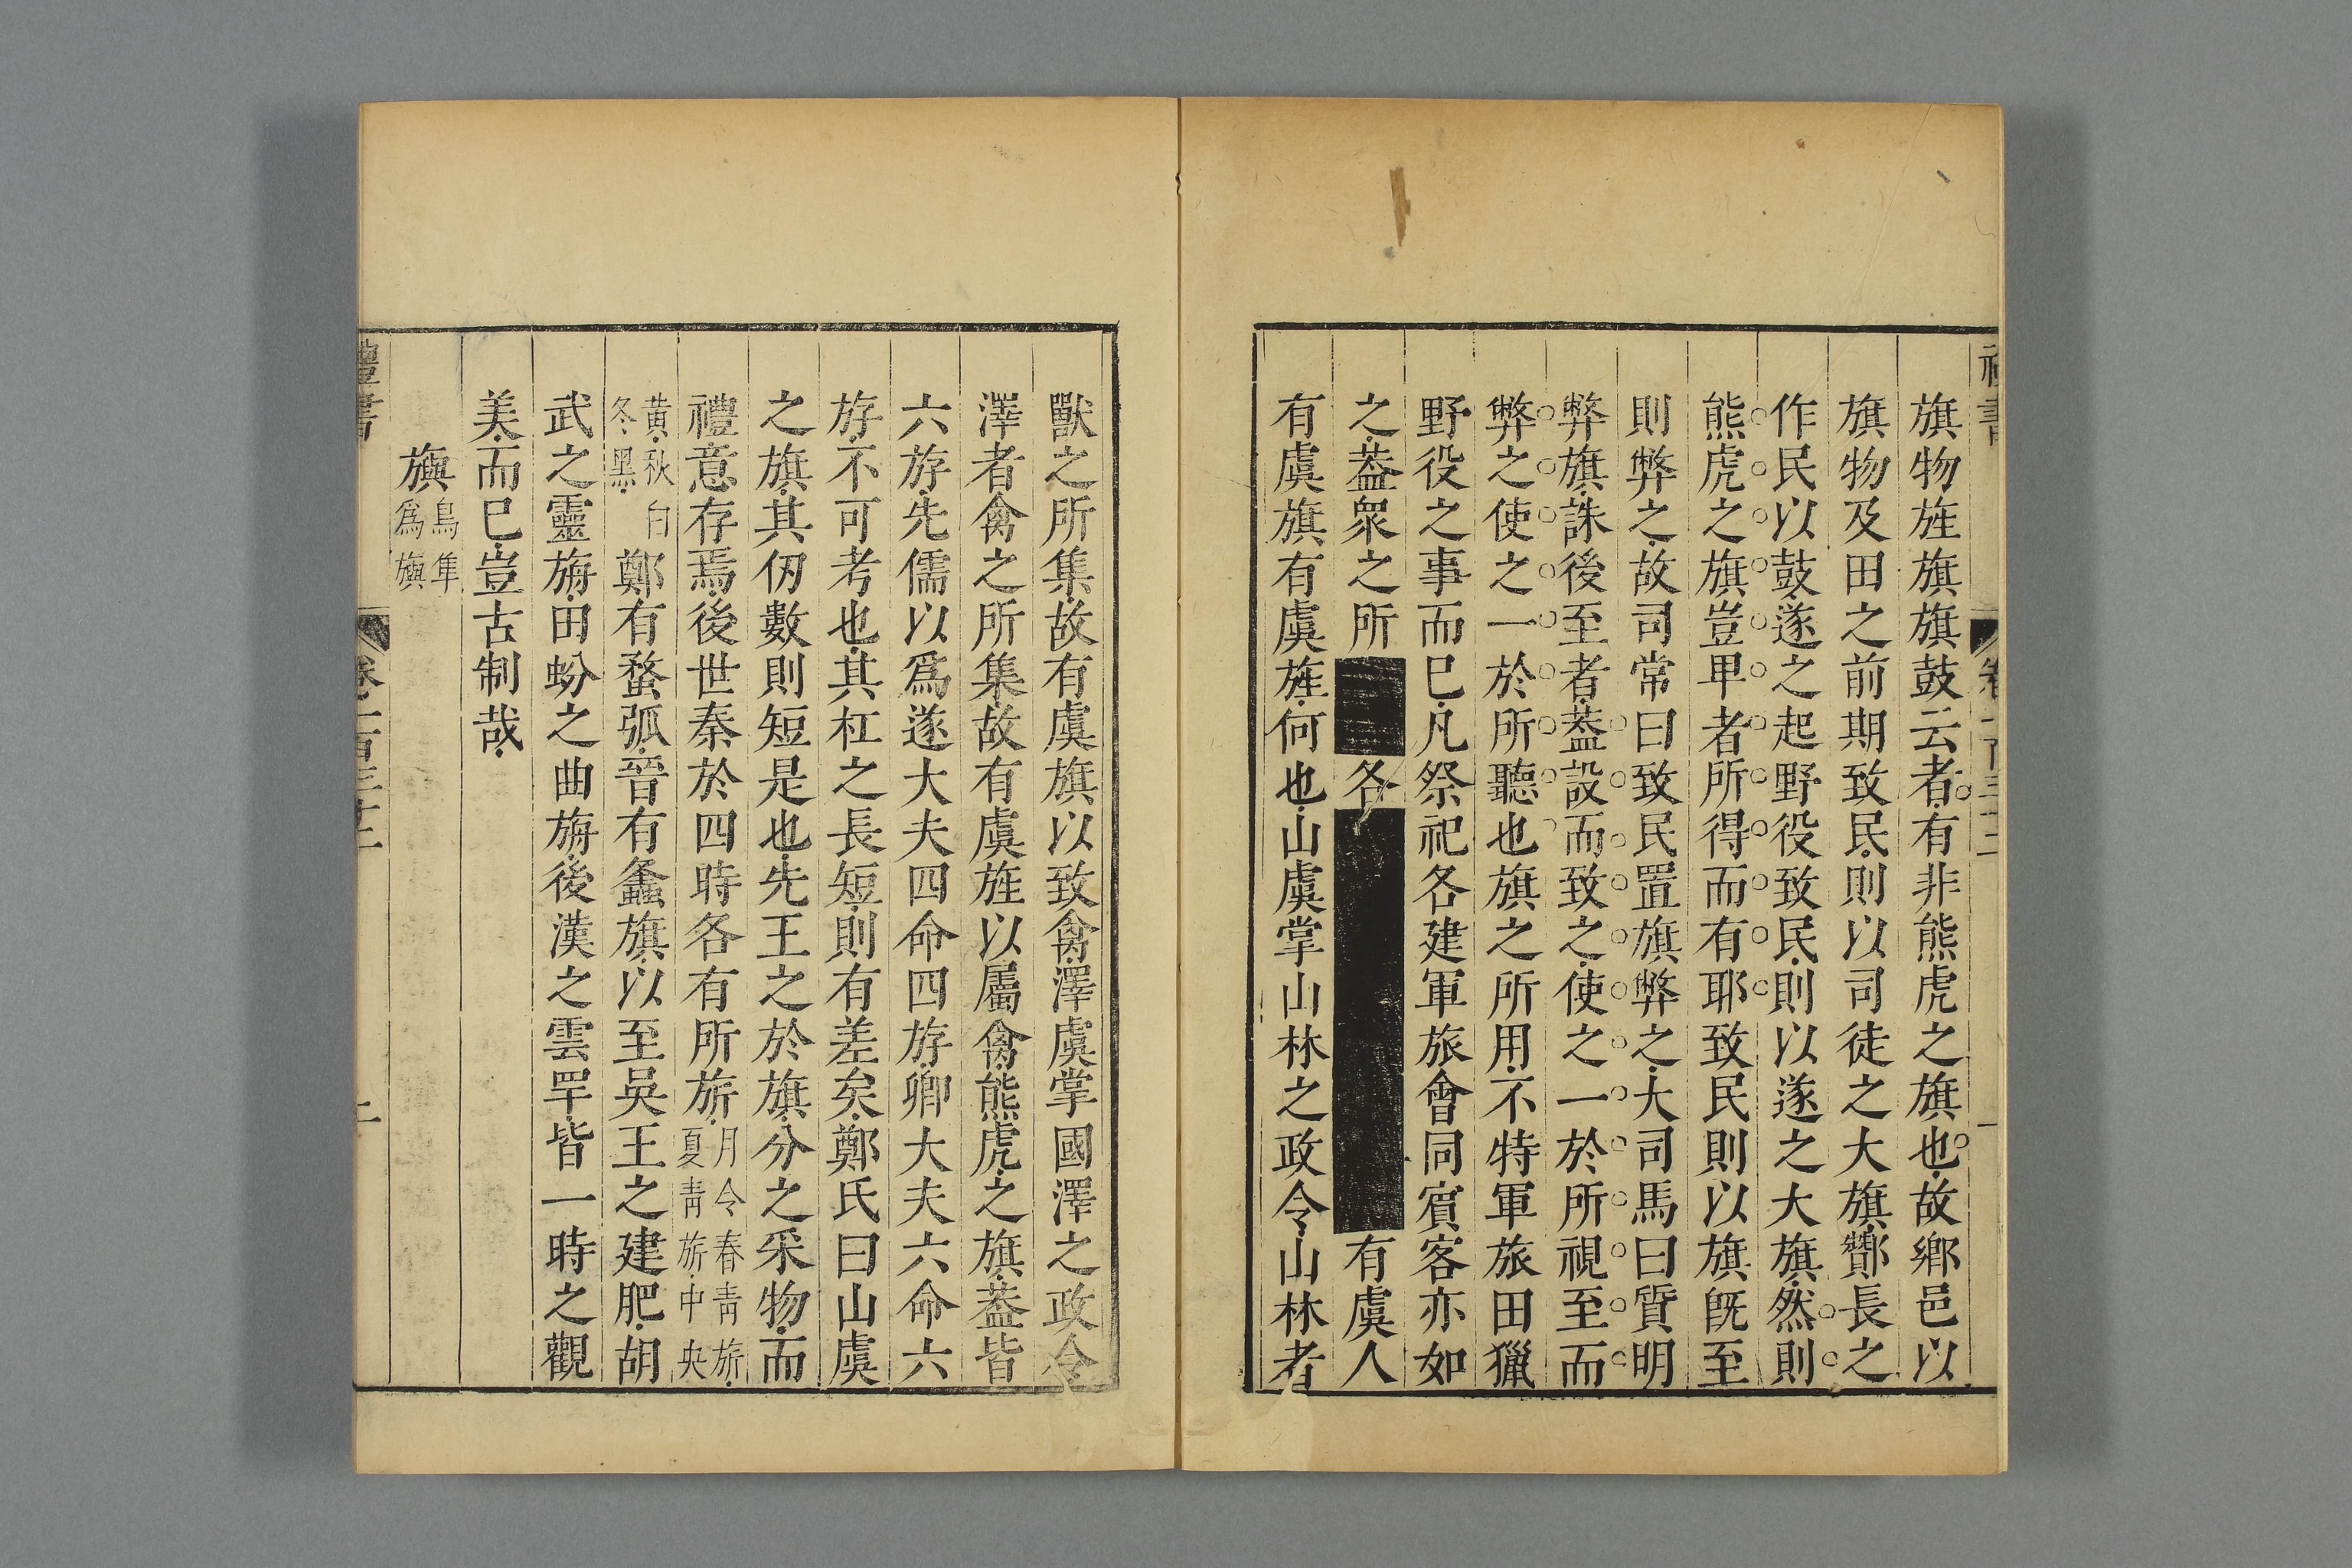 旗物旌旗旗鼓云者有非熊虎之旗也故鄉邑以
旗物及田之前期致民則以司徒之大旗酇長之
作民以鼓遂之起野役致民則以遂之大旗然則
熊虎之旗豈甲者所得而有耶致民則以旗旣至
則弊之故司常曰致民置旗弊之大司馬曰質明
弊旗誅後至者葢設而致之使之一於所視至而
弊之使之一於所聽也旗之所用不特軍旅田獵
野役之事而巳凡祭祀各建軍旅會同賔客亦如
之葢衆之所 各 有虞人
有虞旗有虞旌何也山虞掌山林之政令山林者
獸之所集故有虞旗以致禽澤虞掌國澤之政令
澤者禽之所集故有虞旌以屬禽熊虎之旗葢皆
六斿先儒以爲遂大夫四命四斿卿大夫六命六
斿不可考也其杠之長短則有差矣鄭氏曰山虞
之旗其仭數則短是也先王之於旗分之采物而
禮意存焉後世秦於四時各有所旂月令春青旂夏青旂中央
黄秋白冬黑鄭有蝥弧晉有螽旗以至吳王之建肥胡
武之靈旃田蚡之曲旃後漢之雲罕皆一時之觀
美而巳豈古制哉
旟鳥隼爲旟
禮書 卷一百三十二 二